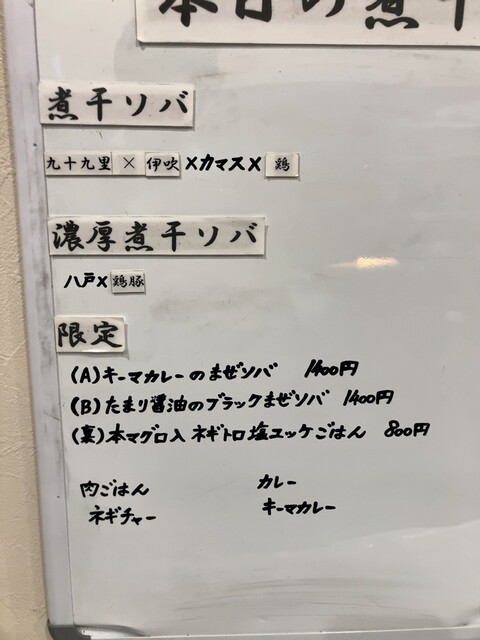 本日の煮干
煮干ソバ
九十九里 × 伊吹 ×カマス× 鶏
濃厚煮干ソバ
八戸× 鶏豚
限定
(A)キーマカレーのまぜソバ 1400円
(B)たまり醤油のブラックまぜソバ 1400円
(裏)本マグロ入 ネギトロ塩ユッケごはん 800円
肉ごはん カレー
ネギチャー キーマカレー